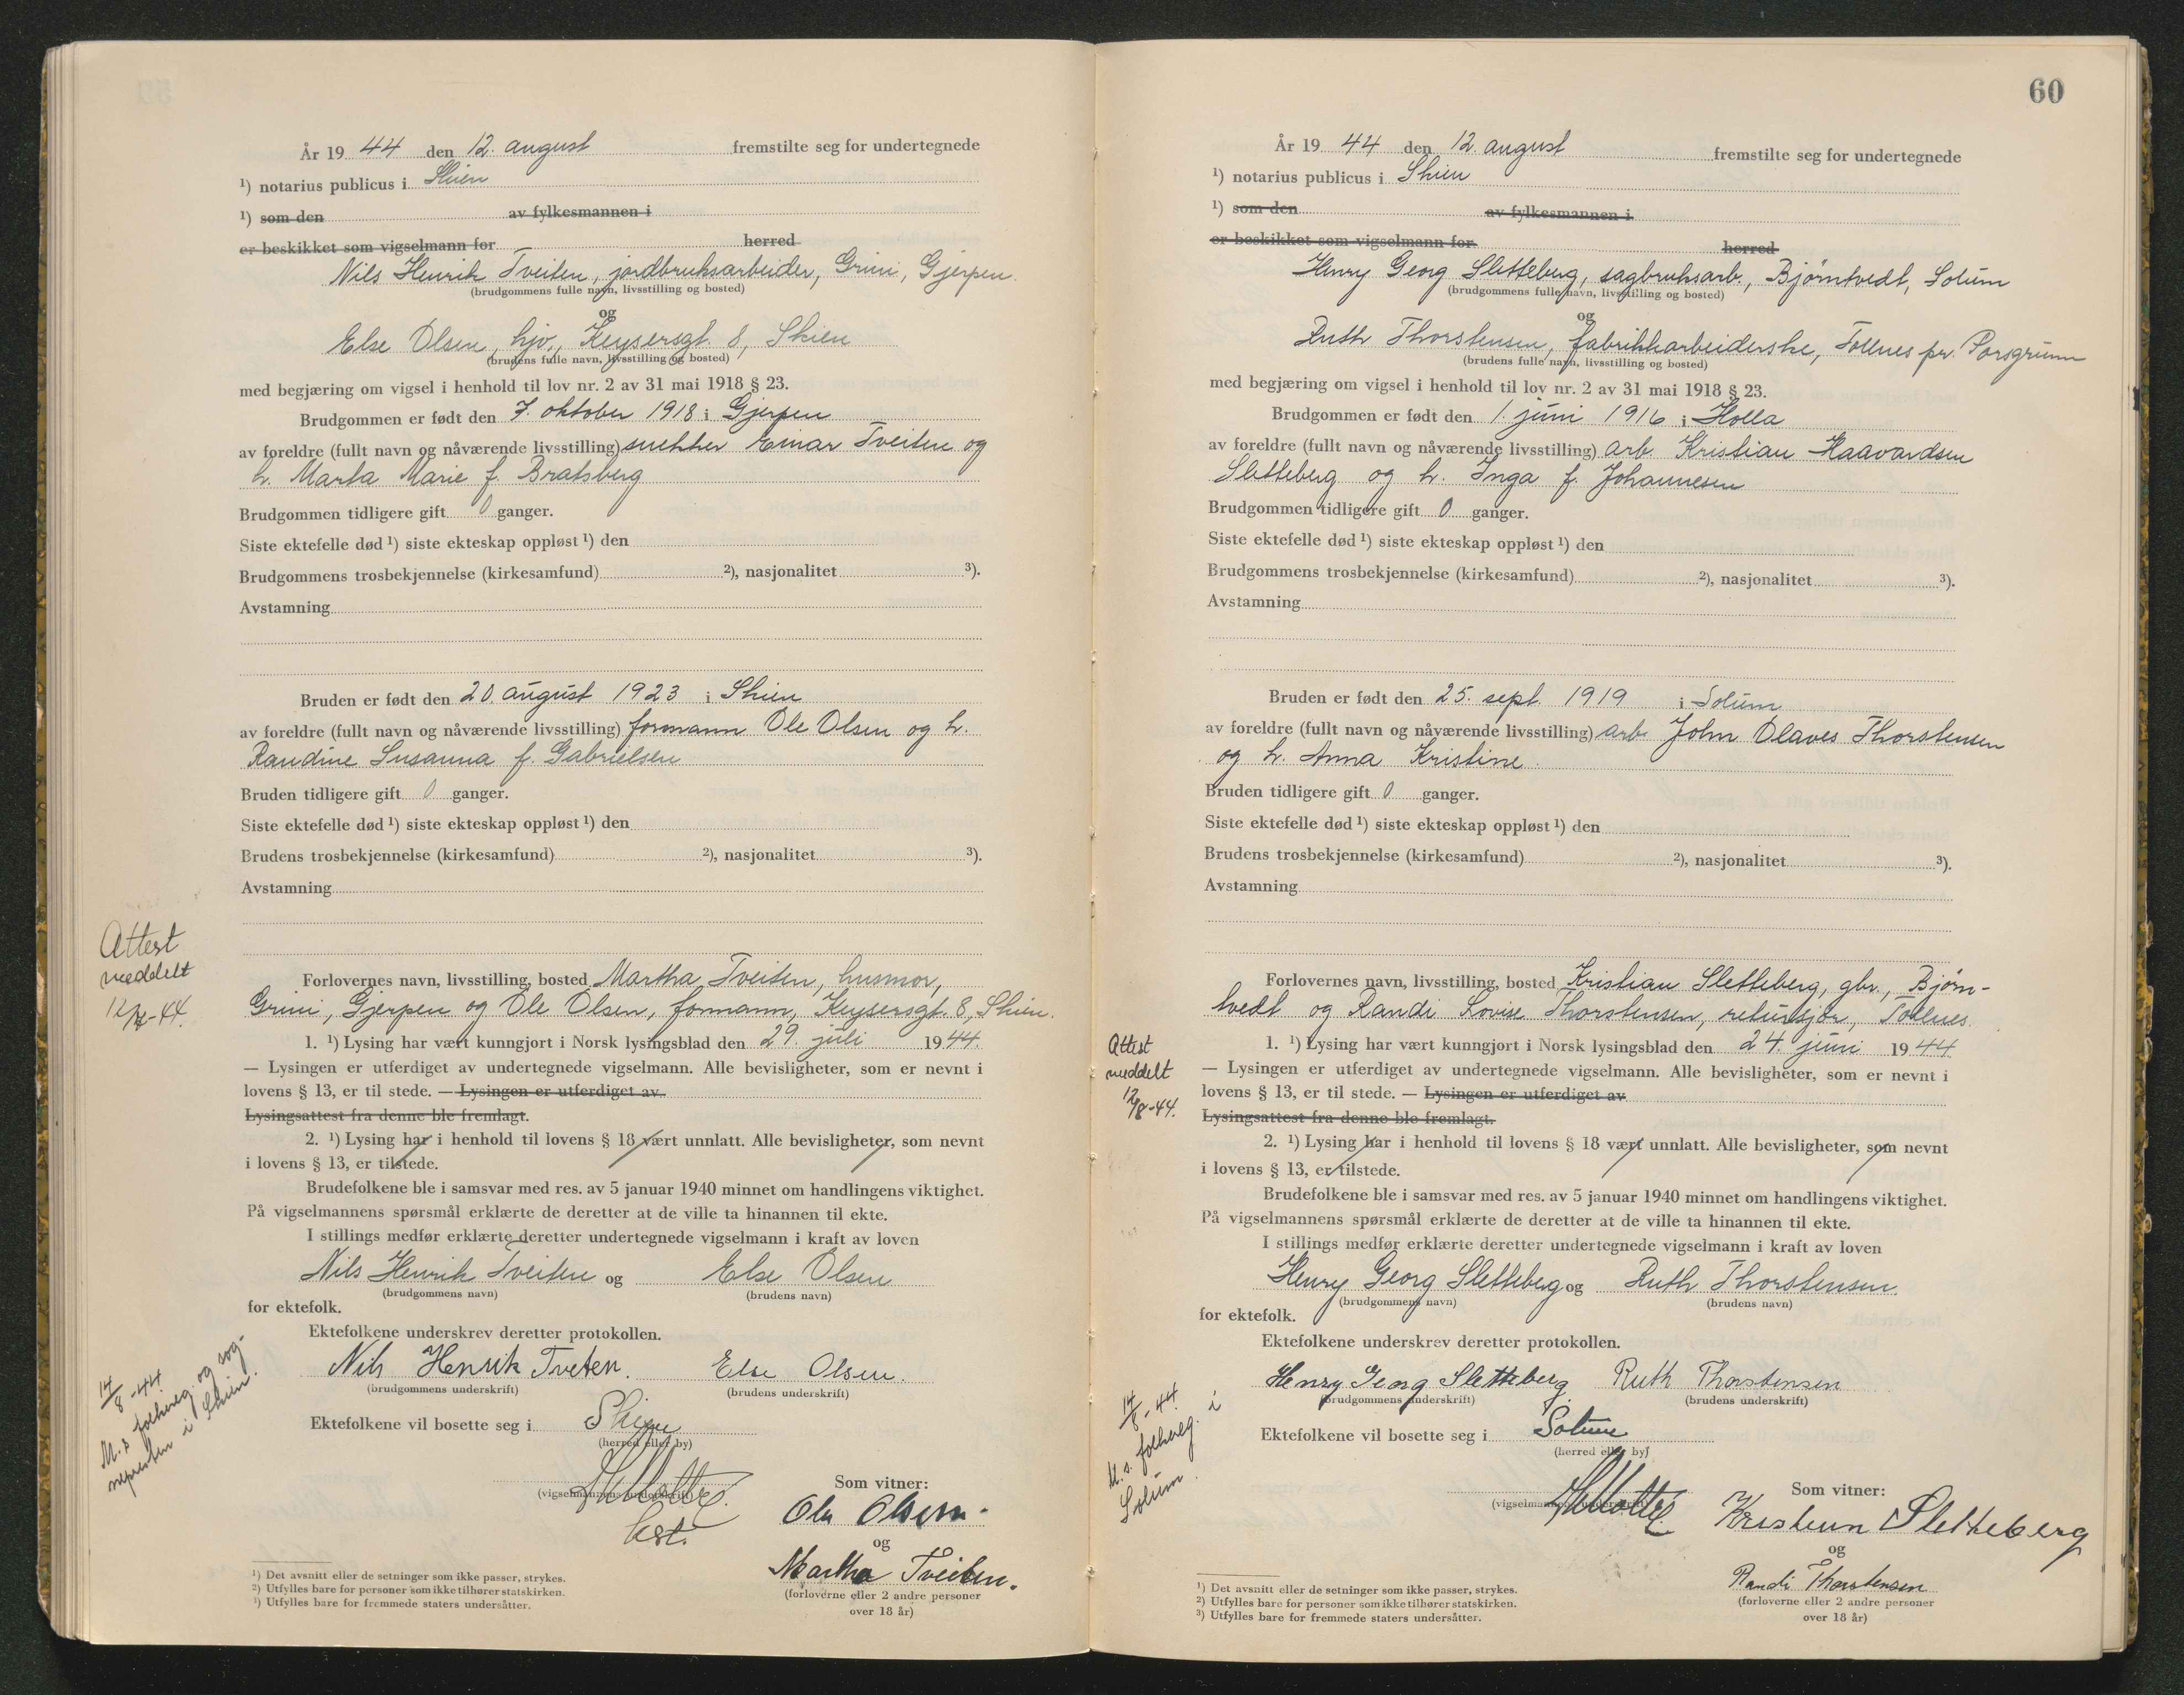 År 19 44 den 12. august fremstilte seg for undertegnede
¹) notarius publicus i Skien
¹) som den av fylkesmannen i
er beskikket som vigselmann for herred
Nils Henrik Tveiten, jordbruksarbeider, Grini, Gjerpen.
(brudgommens fulle navn, livsstilling og bosted)
og
Else Olsen, hjv., Keysersgt. 8, Skien
(brudens fulle navn, livsstilling og bosted)
med begjæring om vigsel i henhold til lov nr. 2 av 31 mai 1918 § 23.
Brudgommen er født den 7. oktober 1918 i Gjerpen
av foreldre (fullt navn og nåværende livsstilling) snekker Einar Tveiten og
h. Marta Marie f. Bratsberg
Brudgommen tidligere gift 0 ganger.
Siste ektefelle død ¹) siste ekteskap oppløst ¹) den
Brudgommens trosbekjennelse (kirkesamfund) ²), nasjonalitet ³).
Avstamning
Bruden er født den 20. august 1923 i Skien
av foreldre (fullt navn og nåværende livsstilling) formann Ole Olsen og h.
Randine Susanna f. Gabrielsen
Bruden tidligere gift 0 ganger.
Siste ektefelle død ¹) siste ekteskap oppløst ¹) den
Brudens trosbekjennelse (kirkesamfund) ²), nasjonalitet ³).
Avstamning
Attest
meddelt
12/8-44.
Forlovernes navn, livsstilling, bosted Martha Tveiten, husmor,
Grini, Gjerpen og Ole Olsen, formann, Keysersgt. 8, Skien.
1. ¹) Lysing har vært kunngjort i Norsk lysingsblad den 29. juli 19 44.
— Lysingen er utferdiget av undertegnede vigselmann. Alle bevisligheter, som er nevnt i
lovens § 13, er til stede. — Lysingen er utferdiget av
Lysingsattest fra denne ble fremlagt.
2. ¹) Lysing har i henhold til lovens § 18 vært unnlatt. Alle bevisligheter, som nevnt
i lovens § 13, er tilstede.
Brudefolkene ble i samsvar med res. av 5 januar 1940 minnet om handlingens viktighet.
På vigselmannens spørsmål erklærte de deretter at de ville ta hinannen til ekte.
I stillings medfør erklærte deretter undertegnede vigselmann i kraft av loven
Nils Henrik Tveiten og Else Olsen
(brudgommens navn) (brudens navn)
for ektefolk.
Ektefolkene underskrev deretter protokollen.
Nils Henrik Tveten. Else Olsen.
(brudgommens underskrift) (brudens underskrift)
14/8-44
M. s folkereg. og sog-
nepresten i Skien.
Ektefolkene vil bosette seg i Skien
(herred eller by)
(vigselmannens underskrift)
Som vitner:
Ole Olsen.
og
Martha Tveiten.
(forloverne eller 2 andre personer
over 18 år)
¹) Det avsnitt eller de setninger som ikke passer, strykes.
²) Utfylles bare for personer som ikke tilhører statskirken.
³) Utfylles bare for fremmede staters undersåtter.
60
År 19 44 den 12. august fremstilte seg for undertegnede
¹) notarius publicus i Skien
¹) som den av fylkesmannen i
er beskikket som vigselmann for herred
Henry Georg Sletteberg, sagbruksarb., Bjørntvedt, Solum
(brudgommens fulle navn, livsstilling og bosted)
og
Ruth Thorstensen, fabrikkarbeiderske, Tollnes pr. Porsgrunn
(brudens fulle navn, livsstilling og bosted)
med begjæring om vigsel i henhold til lov nr. 2 av 31 mai 1918 § 23.
Brudgommen er født den 1. juni 1916 i Holla
av foreldre (fullt navn og nåværende livsstilling) arb. Kristian Haavardsen
Sletteberg og h. Inga f. Johannesen
Brudgommen tidligere gift 0 ganger.
Siste ektefelle død ¹) siste ekteskap oppløst ¹) den
Brudgommens trosbekjennelse (kirkesamfund) ²), nasjonalitet ³).
Avstamning
Bruden er født den 25. sept. 1919 i Solum
av foreldre (fullt navn og nåværende livsstilling) arb. John Olaves Thorstensen
og h. Anna Kristine
Bruden tidligere gift 0 ganger.
Siste ektefelle død ¹) siste ekteskap oppløst ¹) den
Brudens trosbekjennelse (kirkesamfund) ²), nasjonalitet ³).
Avstamning
Forlovernes navn, livsstilling, bosted Kristian Sletteberg, gbr., Bjørn-
tvedt og Randi Lovise Thorstensen, retursjør, Tollnes.
Attest
meddelt
12/8-44.
1. ¹) Lysing har vært kunngjort i Norsk lysingsblad den 24. juni 19 44
— Lysingen er utferdiget av undertegnede vigselmann. Alle bevisligheter, som er nevnt i
lovens § 13, er til stede. — Lysingen er utferdiget av
Lysingsattest fra denne ble fremlagt.
2. ¹) Lysing har i henhold til lovens § 18 vært unnlatt. Alle bevisligheter, som nevnt
i lovens § 13, er tilstede.
Brudefolkene ble i samsvar med res. av 5 januar 1940 minnet om handlingens viktighet.
På vigselmannens spørsmål erklærte de deretter at de ville ta hinannen til ekte.
I stillings medfør erklærte deretter undertegnede vigselmann i kraft av loven
Henry Georg Sletteberg og Ruth Thorstensen.
(brudgommens navn) (brudens navn)
for ektefolk.
Ektefolkene underskrev deretter protokollen.
Henry Georg Sletteberg Ruth Thorstensen
(brudgommens underskrift) (brudens underskrift)
14/8-44.
M. s. folkereg. i
Solum.
Ektefolkene vil bosette seg i Solum
(herred eller by)
(vigselmannens underskrift)
Som vitner:
Kristian Sletteberg
og
Randi Thorstensen
(forloverne eller 2 andre personer
over 18 år)
¹) Det avsnitt eller de setninger som ikke passer, strykes.
²) Utfylles bare for personer som ikke tilhører statskirken.
³) Utfylles bare for fremmede staters undersåtter.